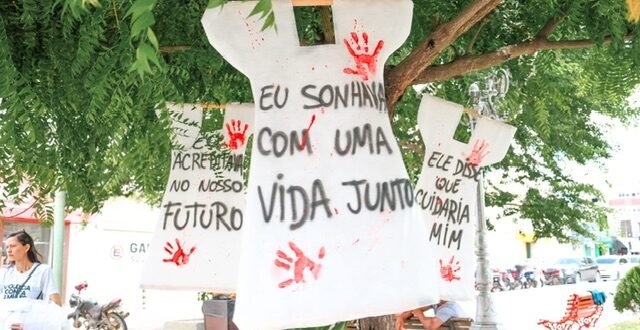 EU
ACREDITAVA
NO NOSSO
FUTURO
EU SONHAVA
COM UMA
VIDA JUNTO
ELE DISSE
QUE
CUIDARIA
MIM
GA